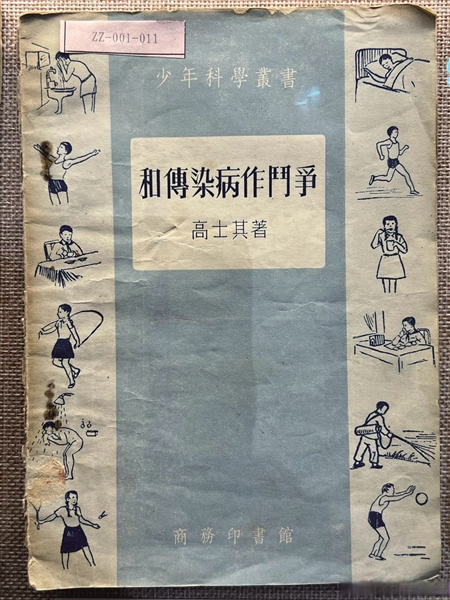 ZZ-001-011
少年科學叢書
和傳染病作鬥爭
高士其著
商務印書館